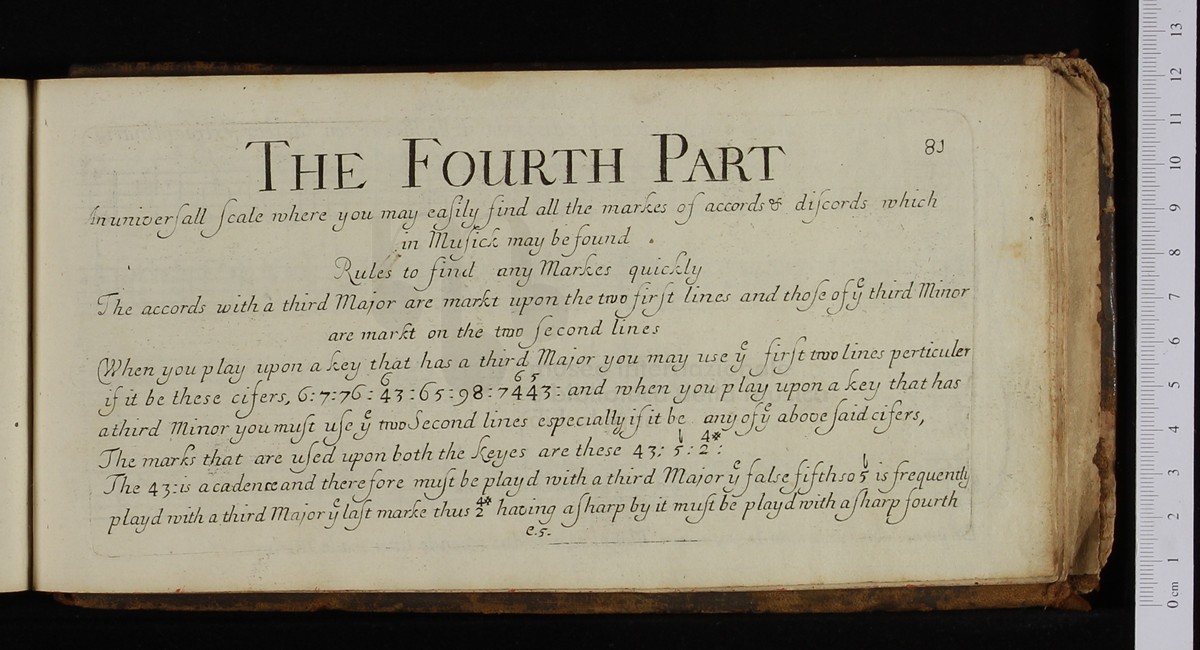 81
THE FOURTH PART
An univerſall ſcale where you may eaſily find all the markes of accords & diſcords which
in Muſick may be found.
Rules to find any Markes quickly
The accords with a third Major are markt upon the two firſt lines and thoſe of yͤ third Minor
are markt on the two ſecond lines
When you play upon a key that has a third Major you may use yͤ firſt two lines perticuler
if it be these cifers, 6:7:76:6/43:65:98:76/45/43: and when you play upon a key that has
a third Minor you muſt uſe yͤ two Second lines especially if it be any of yͤ above ſaid cifers,
The marks that are uſed upon both the keyes are these 43: ♭/5: 4*/2:
The 43: is a cadence and therefore muſt be playd with a third Major yͤ falſe fifth so ♭/5 is frequently
playd with a third Major yͤ laſt marke thus 4*/2 having a ſharp by it muſt be playd with a ſharp fourth
e.5.
0 cm 1 2 3 4 5 6 7 8 9 10 11 12 13